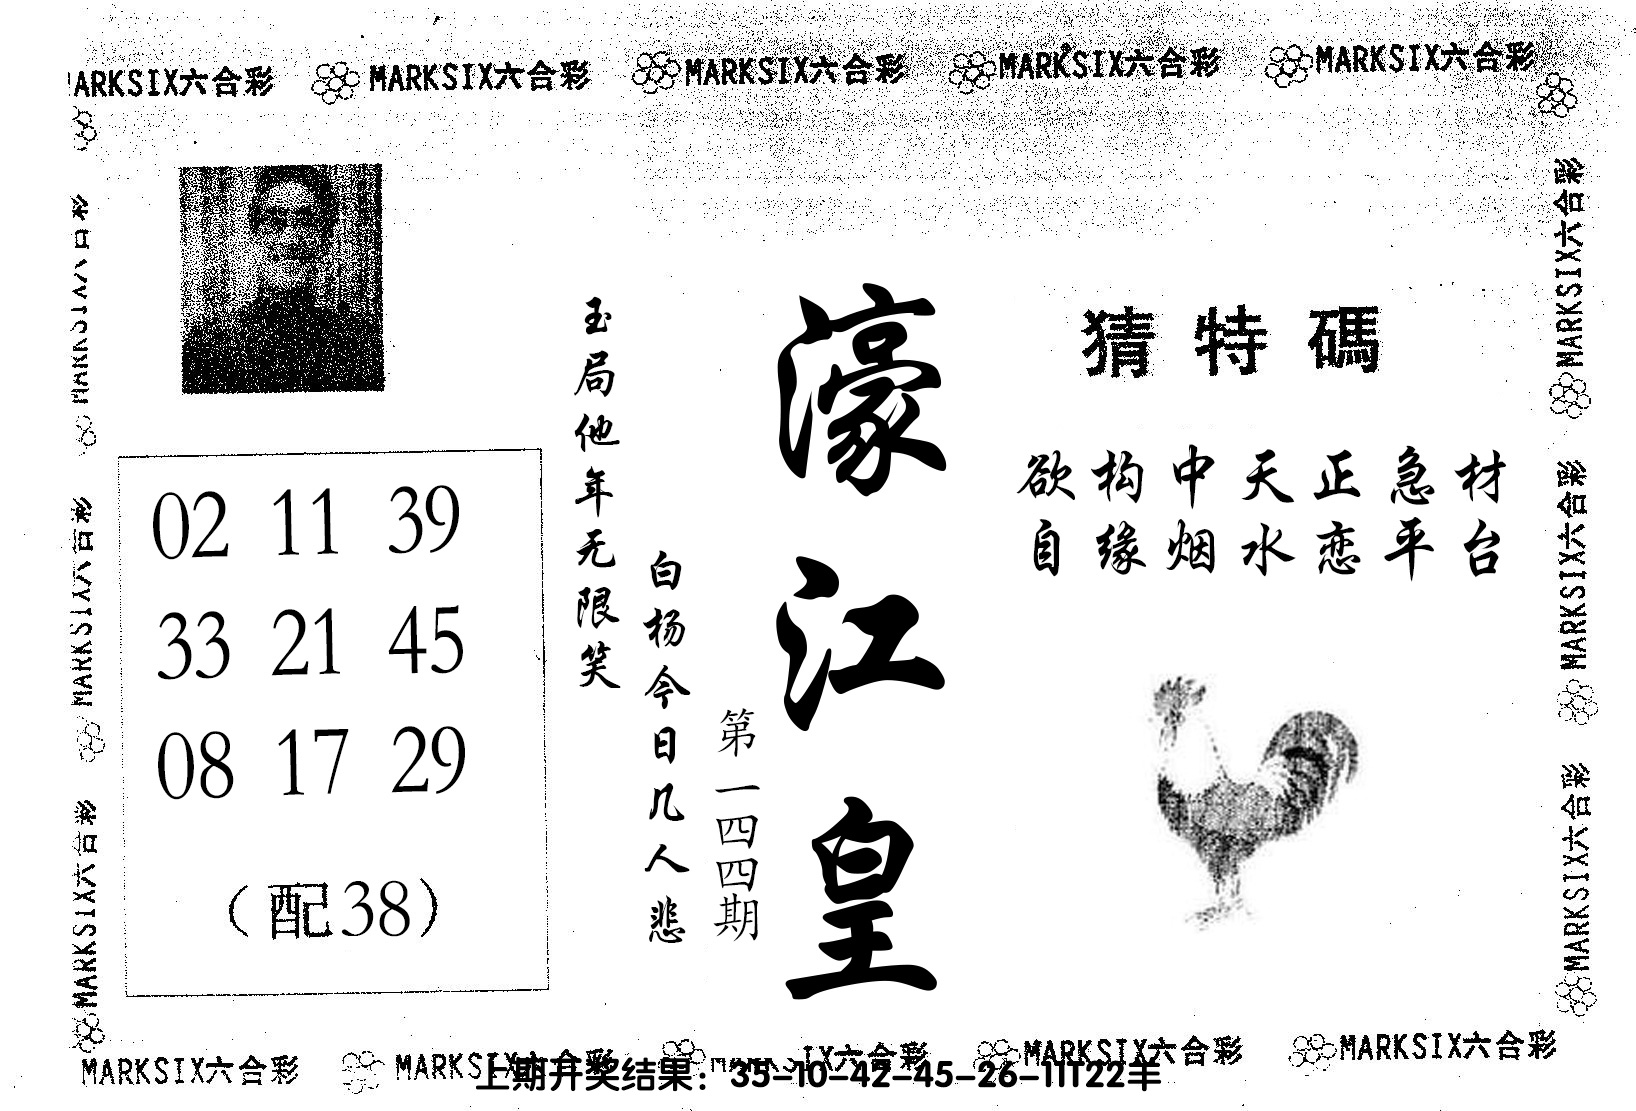 MARKSIX六合彩 MARKSIX六合彩 MARKSIX六合彩 MARKSIX六合彩 MARKSIX六合彩
MARKSIX六合彩
MARKSIX六合彩
MARKSIX六合彩
MARKSIX六合彩
MARKSIX六合彩
MARKSIX六合彩
猜特碼
欲构中天正急材
自缘烟水恋平台
濠江皇
第一四四期
白杨今日几人悲
玉局他年无限笑
02 11 39
33 21 45
08 17 29
（配38）
MARKSIX六合彩 MARKSIX六合彩 MARKSIX六合彩 MARKSIX六合彩 MARKSIX六合彩
上期开奖结果：35-10-42-45-26-11T22羊